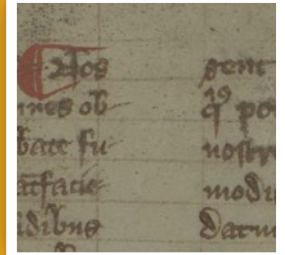 Nos
ines ob
bate fu
atfacie
idibus
gent
qd po
nostre
modi
Datum